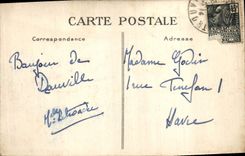 CARTE POSTALE
Correspondance
Adresse
Bonjour de
Deauville
Madame Godin
1 rue
Havre